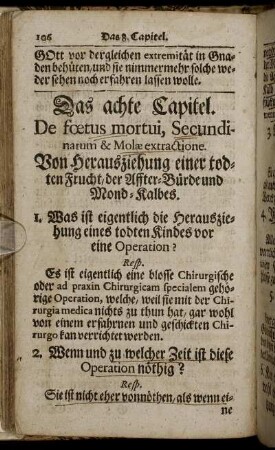 106 Das 8. Capitel.
GOtt vor dergleichen extremität in Gna-
den behüten, und sie nimmermehr solche we-
der sehen noch erfahren lassen wolle.
Das achte Capitel.
De fœtus mortui, Secundi-
narum & Molæ extractione.
Von Herausziehung einer tod-
ten Frucht/ der Affter-Bürde und
Mond-Kalbes.
1. Was ist eigentlich die Herauszie-
hung eines todten Kindes vor
eine Operation?
Resp.
Es ist eigentlich eine blosse Chirurgische
oder ad praxin Chirurgicam specialem gehö-
rige Operation, welche, weil sie mit der Chi-
rurgia medica nichts zu thun hat, gar wohl
von einem erfahrnen und geschickten Chi-
rurgo kan verrichtet werden.
2. Wenn und zu welcher Zeit ist diese
Operation nöthig?
Resp.
Sie ist nicht eher vonnöthen, als wenn ei-
ne